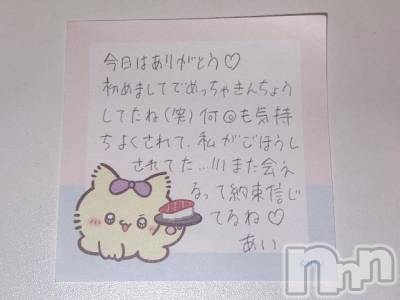 今日はありがとう♡
初めましてでめっちゃきんちょう
してたね(笑)何@も気持
ちよくされて、私がごほうし
されてた...!!!また会え
るって約束信じ
てるね♡
あい
nnn